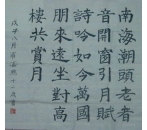 南海潮頭老者
音開窗引月賦
詩吟如今萬國
朋來遠坐對高
樓共賞月
戊子八月